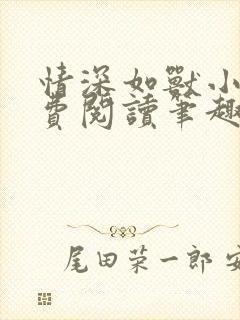 情深如獸小
費閱讀筆趣
尾田荣一郎 安